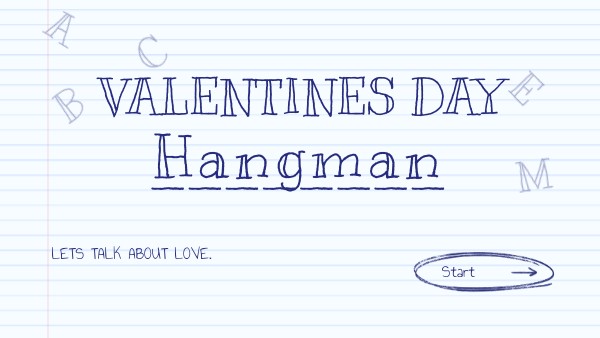 A
C
B
VALENTINES DAY
E
Hangman
M
LETS TALK ABOUT LOVE.
Start